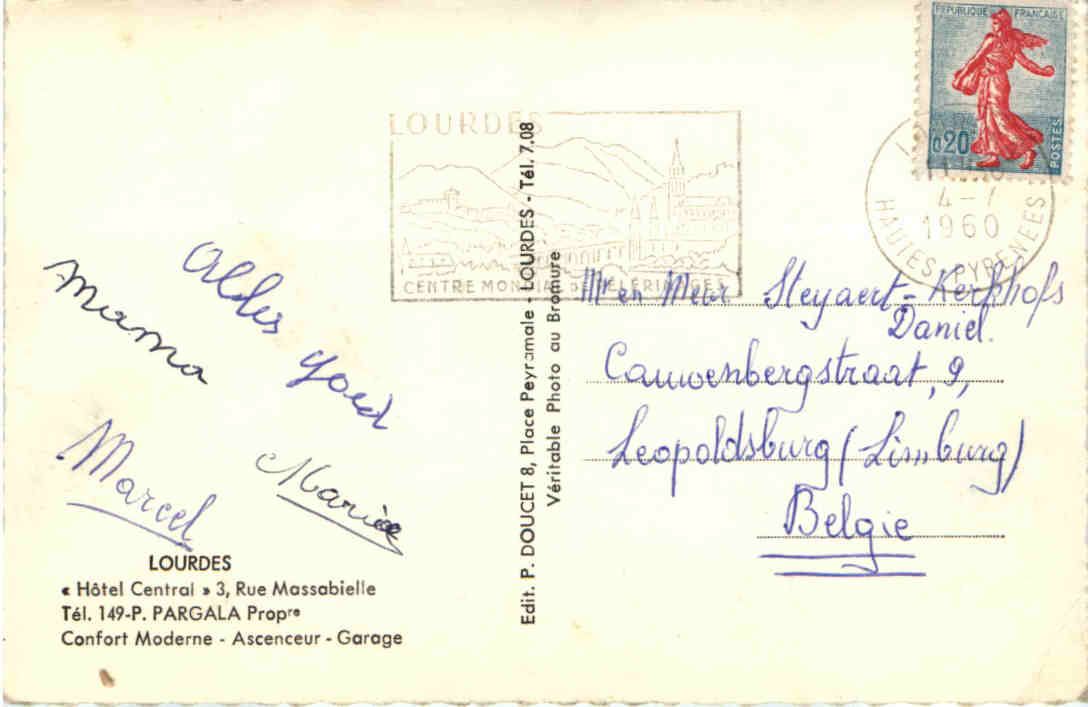 RÉPUBLIQUE FRANÇAISE
0,20
POSTES
LOURDES
CENTRE MONDIAL DE PÈLERINAGES
4-7
1960
HAUTES PYRENEES
Alles goed
Mama
Marcel
Maria
LOURDES
« Hôtel Central » 3, Rue Massabielle
Tél. 149-P. PARGALA Propre
Confort Moderne - Ascenceur - Garage
Edit. P. DOUCET 8, Place Peyramale - LOURDES - Tél. 7.08
Véritable Photo au Bromure
Mr en Mevr Steyaert-Kerkhofs
Daniel.
Cauwenbergstraat, 9,
Leopoldsburg (Limburg)
Belgie